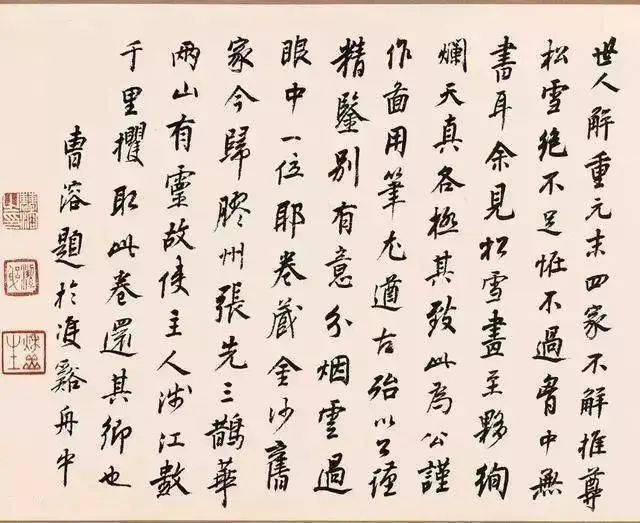 世人解重元末四家不解推尊
松雪絕不足恠不過胷中無
書耳余見松雪畫至夥絢
爛天真各極其致此為公謹
作啚用筆尤遒古殆以公謹
精鑒別有意分烟雲過
眼中一位耶卷藏金沙舊
家今歸膠州張先三鵲華
兩山有靈故使主人涉江數
千里攫取此卷還其鄉也
曹溶題於谿舟中